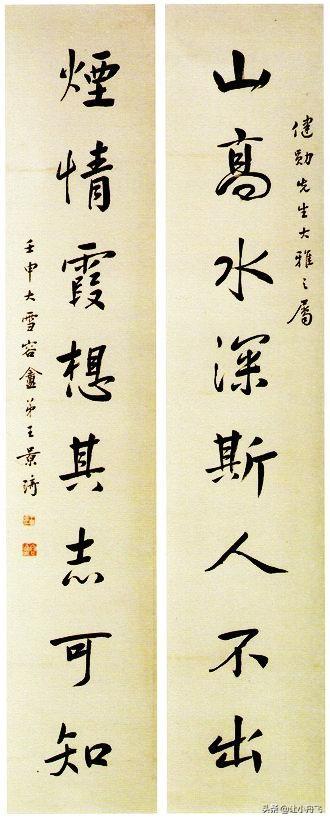 健勛先生大雅之屬
山高水深斯人不出
煙情霞想其志可知
壬申大雪容盦弟王景琦
头条@让小丹飞